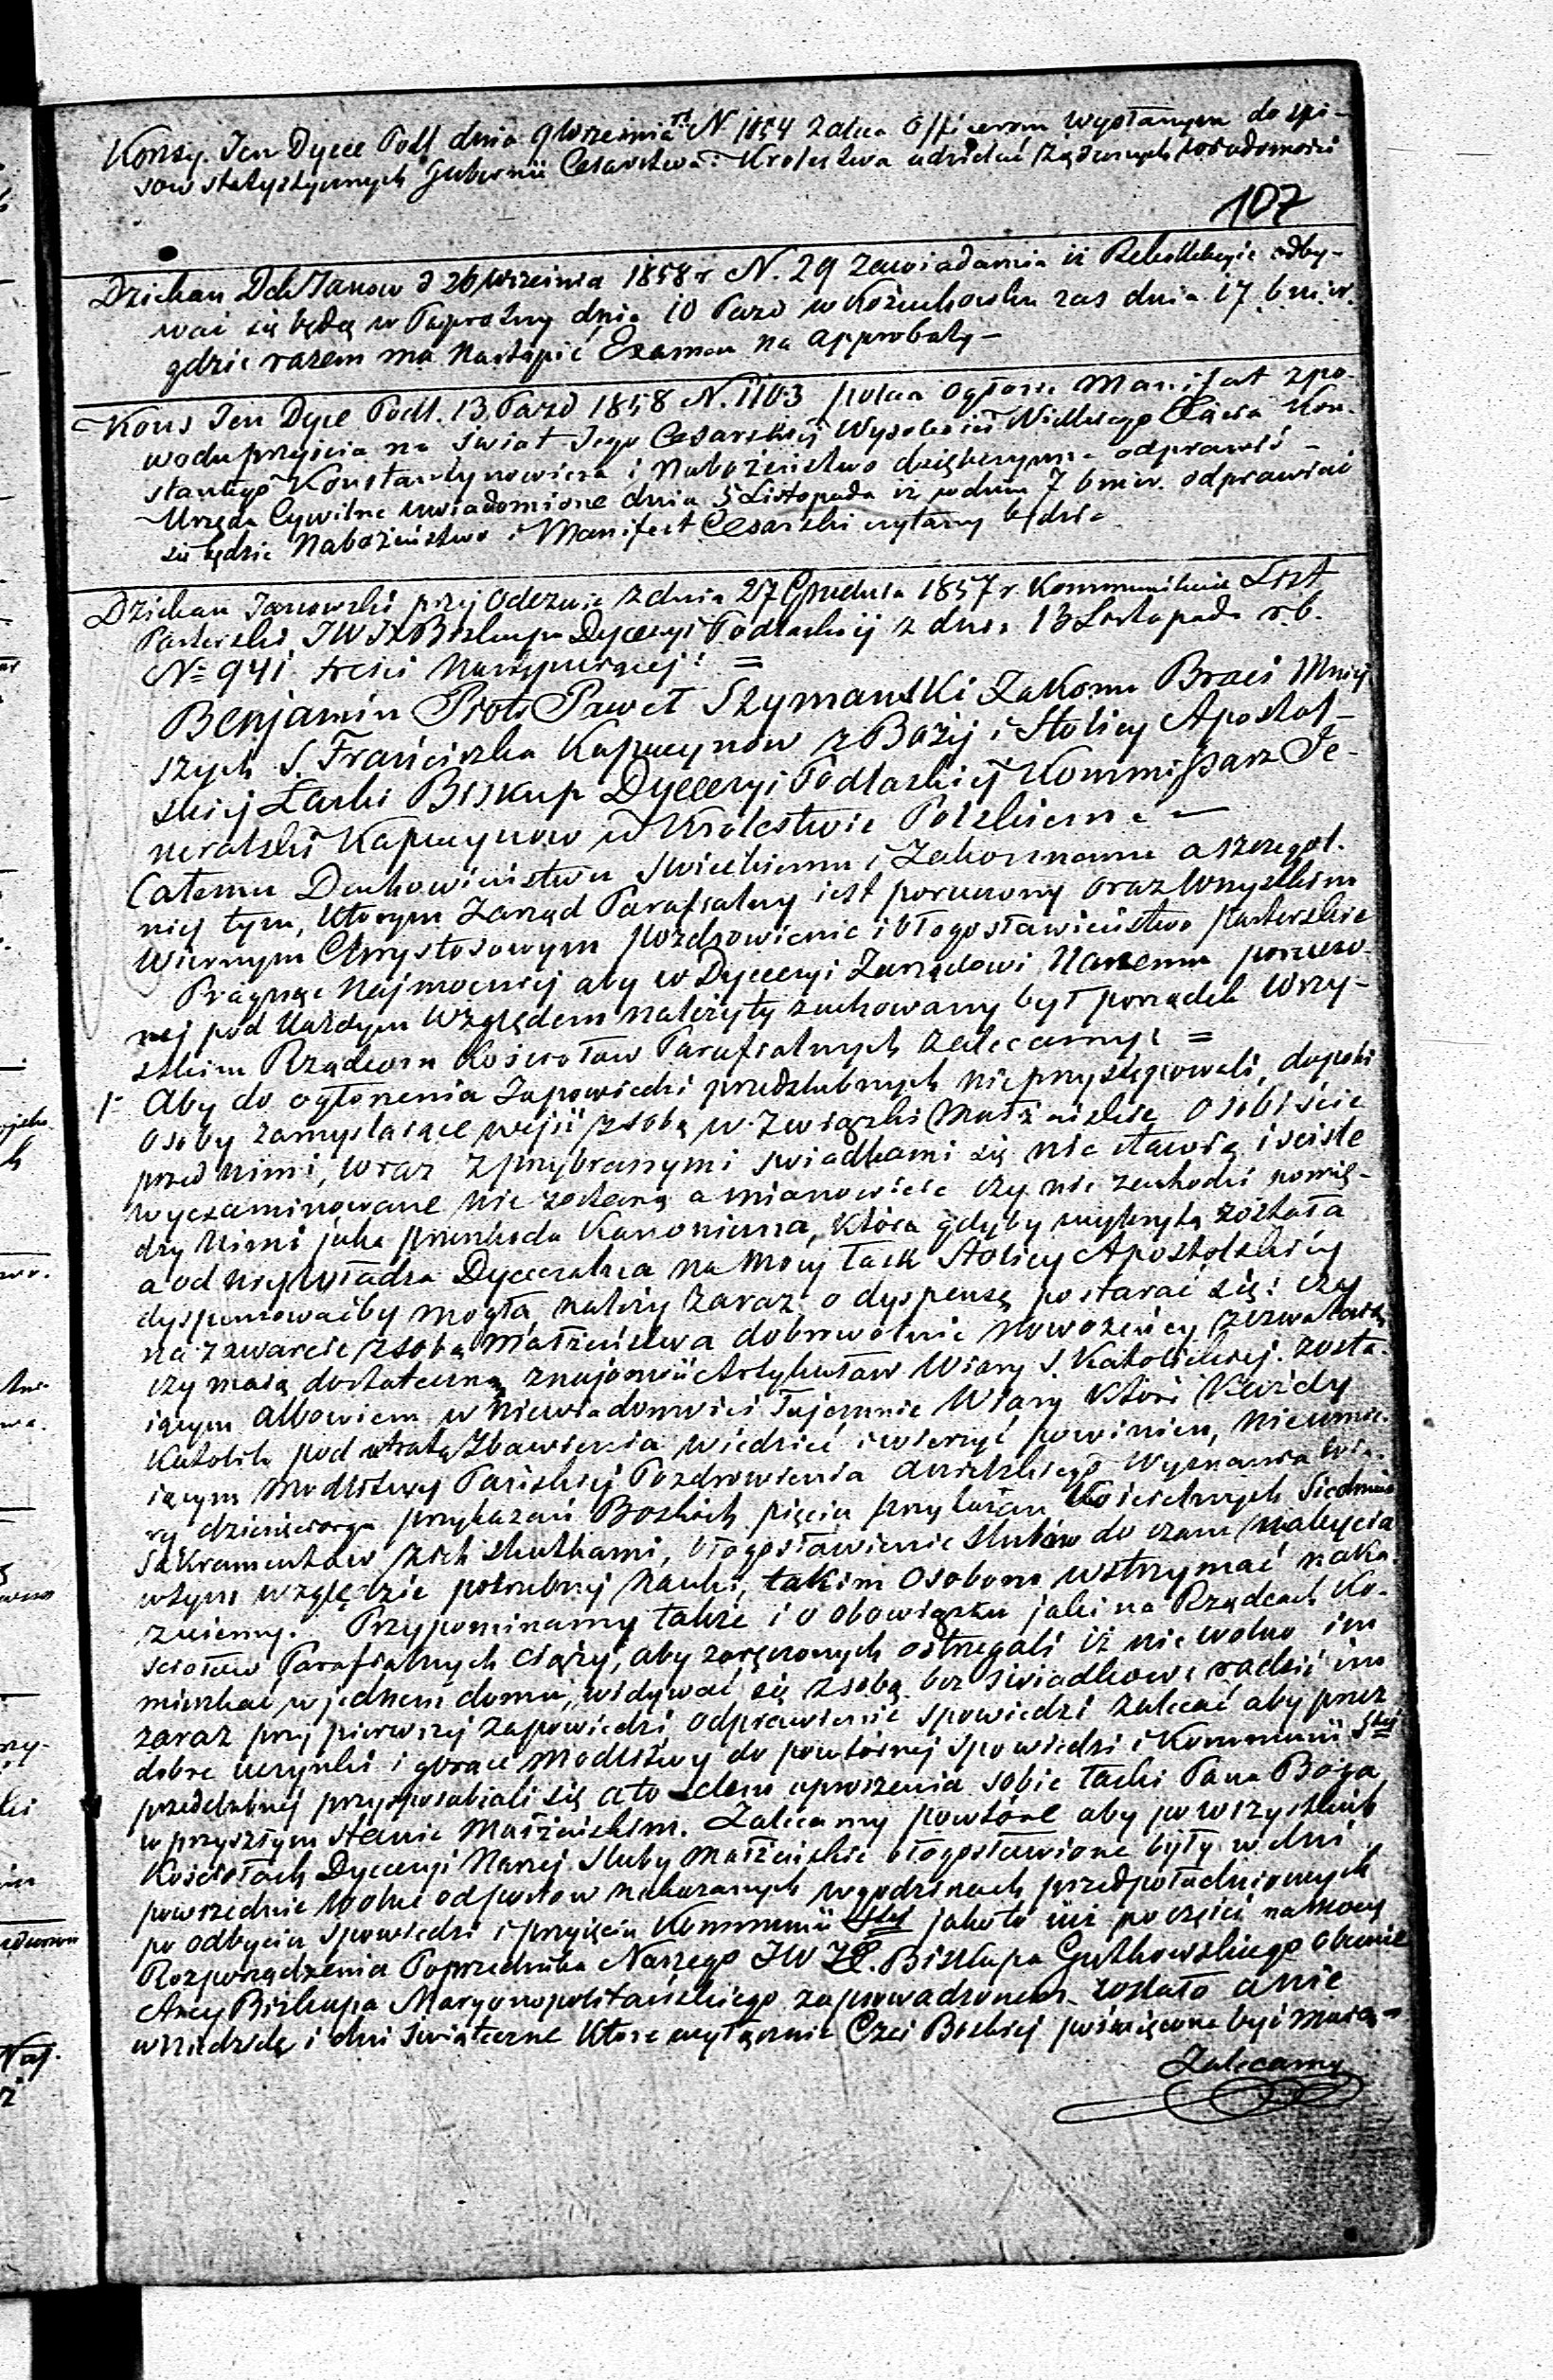 Konsy. Jen Dyece Podl dnia 9 Września N 1854 zaleca Officerom wysłanym do spi-
sow statystycznych Gubernii Cesarstwa i Krolestwa udzielać żądanych wiadomości
107
Dziekan Dek Janow d 26 Września 1858 r N. 29 zawiadamia iż Rekollekcyie odby-
wać się będą w dnia 10 Pazd w Kożuchowku zas dnia 17 b m i r.
gdzie razem ma nastąpić Examen na approbaty —
Kons Jen Dyec Podl. 13 Pazd 1858 N. 1103 poleca ogłosić Manifest z po-
wodu przyiścia na świat Jego Cesarskiej Wysokości Wielkiego Kon-
stantego Konstantynowicza i Nabożeństwo dziękczynne odprawić —
Urzęda Cywilne uwiadomione dnia 5 Listopada iż w dniu 7 b m i r. odprawiać
się będzie Nabożeństwo i Manifest Cesarski czytany będzie
Dziekan Janowski przy Odezwie z dnia 27 Grudnia 1857 r kommunikuie List
Pasterski JW JX Biskupa Dyecezyi Podlaskiej z dnia 13 Listopada r. b.
No 941 treści następuiącej: =
Benjamin Piotr Paweł Szymański Zakonu Braci Mniej
szych S. Franciszka Kapucynow z Bożej i Stolicy Apostol-
skiej Łaski Biskup Dyecezyi Podlaskiej Kommissarz Je-
neralski Kapucynow w Krolestwie Polskiem —
Całemu Duchowieństwu Swieckiemu i Zakonnemu a szczegól-
niej tym, ktorym Zarząd Parafialny iest poruczony oraz wszystkim
Wiernym Chrystusowym pozdrowienie i błogosławieństwo pasterskie
Pragnąc najmocniej aby w Dyecezyi Zarządowi Naszemu poruczo-
nej pod każdym względem należyty zachowany był porządek wszy-
stkim Rządcom Kościołow Parafialnych zalecamy: =
1- Aby do ogłoszenia Zapowiedzi przedślubnych nieprzystępowali, dopoki
osoby zamyslaiące wejść z sobą w związki Małżeńskie osobiście
przed nimi, wraz z przybranymi swiadkami się nie stawią i sciśle
wyexaminowane nie zostaną a mianowicie czy nie zachodzi pomię-
dzy nimi jaka przeszkoda Kanoniczna, która gdyby wykrytą została
a od niej Władza Dyecezalna na mocy łask Stolicy Apostolskiej
dyspensowaćby mogła, należy zaraz o dyspensę postarać się: czy
na zawarcie z sobą małżeństwa dobrowolnie nowożeńcy zezwalaią
czy maią dostateczną znajomość Artykułow Wiary S. Katolickiej. zosta-
iącym albowiem w niewiadomości Tajemnic Wiary które każdy
Katolik pod utratą zbawienia wiedzieć i wierzyć powinien, nieumie-
iącym Modlitwy Pańskiej Pozdrowienia Anielskiego Wyznania Wia-
ry dziesięciorga przykazań Boskich pięciu przykazań Kościelnych Siedmiu
Sakramentow z ich skutkami, błogosławienie slubów do czasu nabycia
w tym względzie potrzebnej nauki, takim osobom wstrzymać naka-
zuiemy. Przypominamy także i o obowiązku jaki na Rządcach Ko-
ściołow Parafialnych ciąży, aby zaręczonych ostrzegali iż nie wolno im
mieszkać w jednem domu, widywać się z sobą bez świadkow, radzić im
zaraz przy pierwszej zapowiedzi odprawienie spowiedzi zalecać aby przez
dobre uczynki i gorące modlitwy do powtórnej spowiedzi i Kommunii Stej
przedslubnej przysposabiali się a to celem uproszenia sobie łaski Pana Boga
w przyszłym stanie małżeńskim. Zalecamy powtóre aby po wszystkich
Kościołach Dyecezyi Naszej sluby małżeńskie błogosławione były w dni
powszednie wolne od postow nakazanych w godzinach przedpołudniowych
po odbyciu spowiedzi i przyięciu Kommunii Stej jako to iuż po części na mocy
Rozporządzenia Poprzednika Naszego JW JX. Biskupa Gutkowskiego obecnie
Arcy Biskupa Maryanopolitańskiego zaprowadzonem zostało a nie
w niedzielę i dni świąteczne które wyłącznie Czci Boskiej poświęcone być maią =
Zalecamy